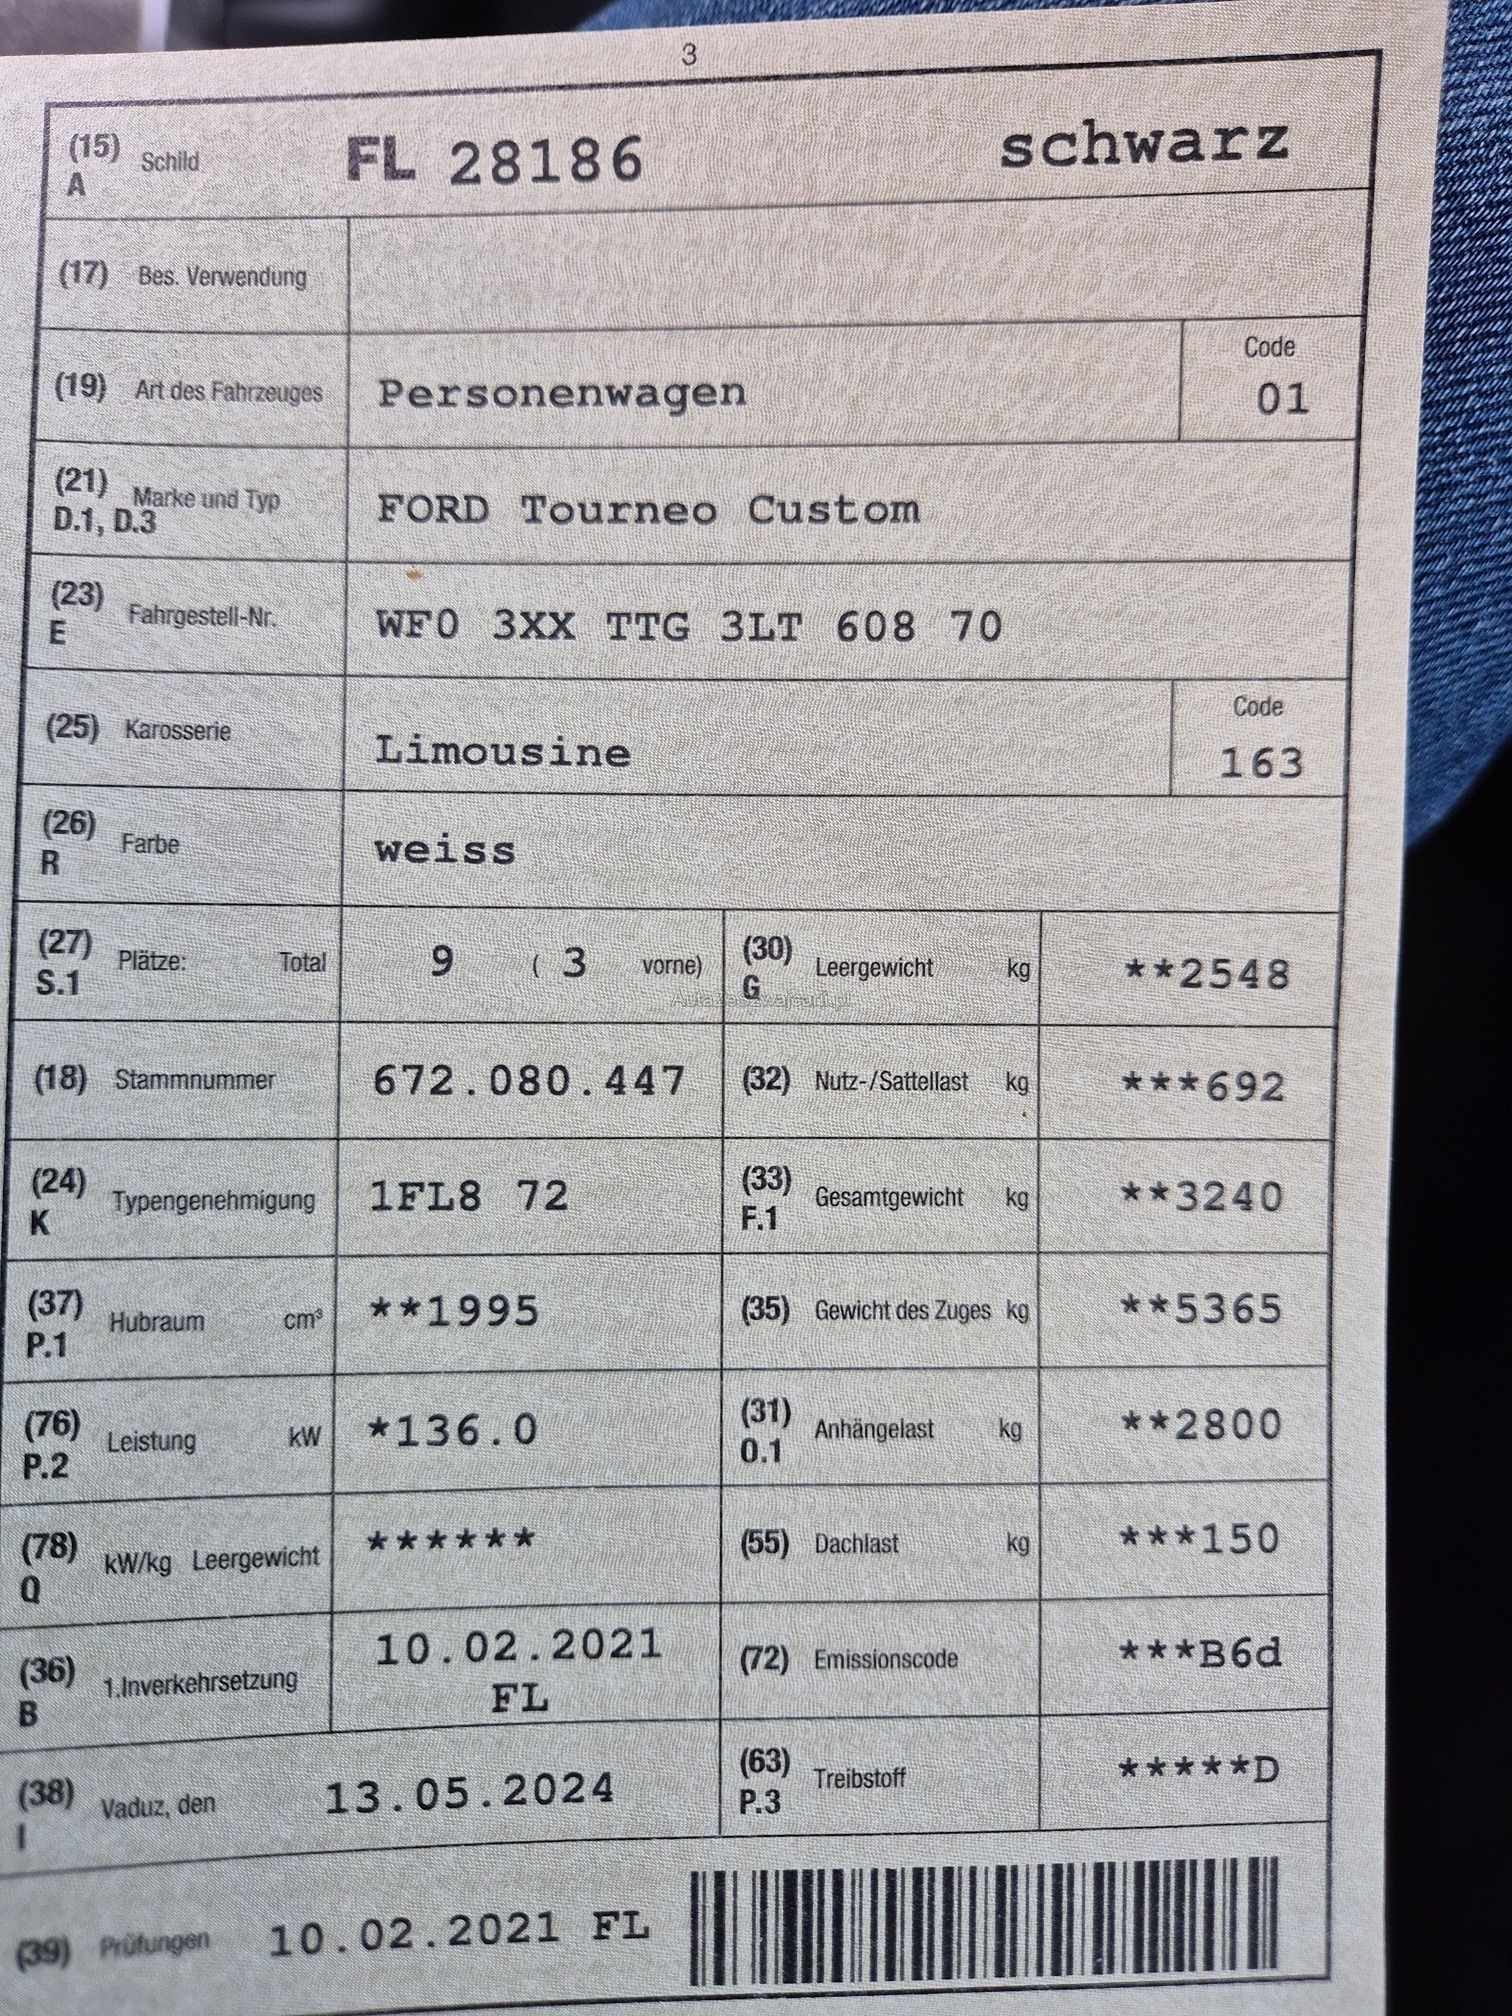 3
(15) A Schild FL 28186 schwarz
(17) Bes. Verwendung
(19) Art des Fahrzeuges Personenwagen Code 01
(21) D.1, D.3 Marke und Typ FORD Tourneo Custom
(23) E Fahrgestell-Nr. WF0 3XX TTG 3LT 608 70
(25) Karosserie Limousine Code 163
(26) R Farbe weiss
(27) S.1 Plätze: Total 9 ( 3 vorne) (30) G Leergewicht kg **2548
(18) Stammnummer 672.080.447 (32) Nutz-/Sattellast kg ***692
(24) K Typengenehmigung 1FL8 72 (33) F.1 Gesamtgewicht kg **3240
(37) P.1 Hubraum cm³ **1995 (35) Gewicht des Zuges kg **5365
(76) P.2 Leistung kW *136.0 (31) O.1 Anhängelast kg **2800
(78) Q kW/kg Leergewicht ****** (55) Dachlast kg ***150
(36) B 1.Inverkehrsetzung 10.02.2021 FL (72) Emissionscode ***B6d
(38) I Vaduz, den 13.05.2024 (63) P.3 Treibstoff *****D
(39) Prüfungen 10.02.2021 FL